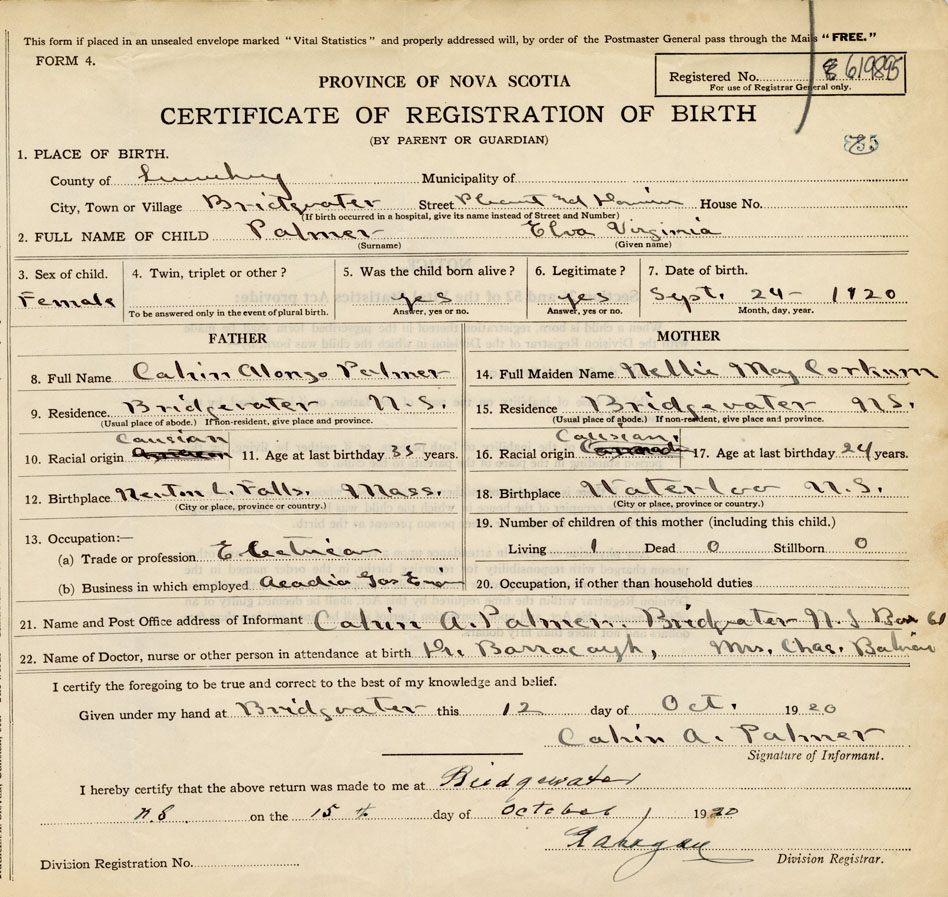 This form if placed in an unsealed envelope marked "Vital Statistics" and properly addressed will, by order of the Postmaster General pass through the Mails "FREE."
FORM 4.
PROVINCE OF NOVA SCOTIA
Registered No. 8619895
For use of Registrar General only.
CERTIFICATE OF REGISTRATION OF BIRTH
(BY PARENT OR GUARDIAN)
835
1. PLACE OF BIRTH.
County of Lunenburg Municipality of
City, Town or Village Bridgwater Street Pleasant House No.
(If birth occurred in a hospital, give its name instead of Street and Number)
2. FULL NAME OF CHILD Palmer Elva Virginia
(Surname) (Given name)
3. Sex of child. 4. Twin, triplet or other? 5. Was the child born alive? 6. Legitimate? 7. Date of birth.
Female yes yes Sept. 24- 1920
To be answered only in the event of plural birth. Answer, yes or no. Answer, yes or no. Month, day, year.
FATHER MOTHER
8. Full Name Calvin Alonzo Palmer 14. Full Maiden Name Nellie May Corkum
9. Residence Bridgewater N.S. 15. Residence Bridgewater N.S.
(Usual place of abode.) If non-resident, give place and province. (Usual place of abode.) If non-resident, give place and province.
Causian Causian.
10. Racial origin 11. Age at last birthday 35 years. 16. Racial origin 17. Age at last birthday 24 years.
12. Birthplace Newton L. Falls. Mass. 18. Birthplace Waterloo N.S.
(City or place, province or country.) (City or place, province or country.)
13. Occupation:— 19. Number of children of this mother (including this child.)
(a) Trade or profession Electrician Living 1 Dead 0 Stillborn 0
(b) Business in which employed Acadia Gas Engi 20. Occupation, if other than household duties
21. Name and Post Office address of Informant Calvin A. Palmer. Bridgwater N.S Box 61
22. Name of Doctor, nurse or other person in attendance at birth Dr. , Mrs. Chas.
I certify the foregoing to be true and correct to the best of my knowledge and belief.
Given under my hand at Bridgwater this 12 day of Oct. 1920
Calvin A. Palmer
Signature of Informant.
I hereby certify that the above return was made to me at Bridgewater
N.S on the 15 th day of October 1920
Division Registration No. Division Registrar.